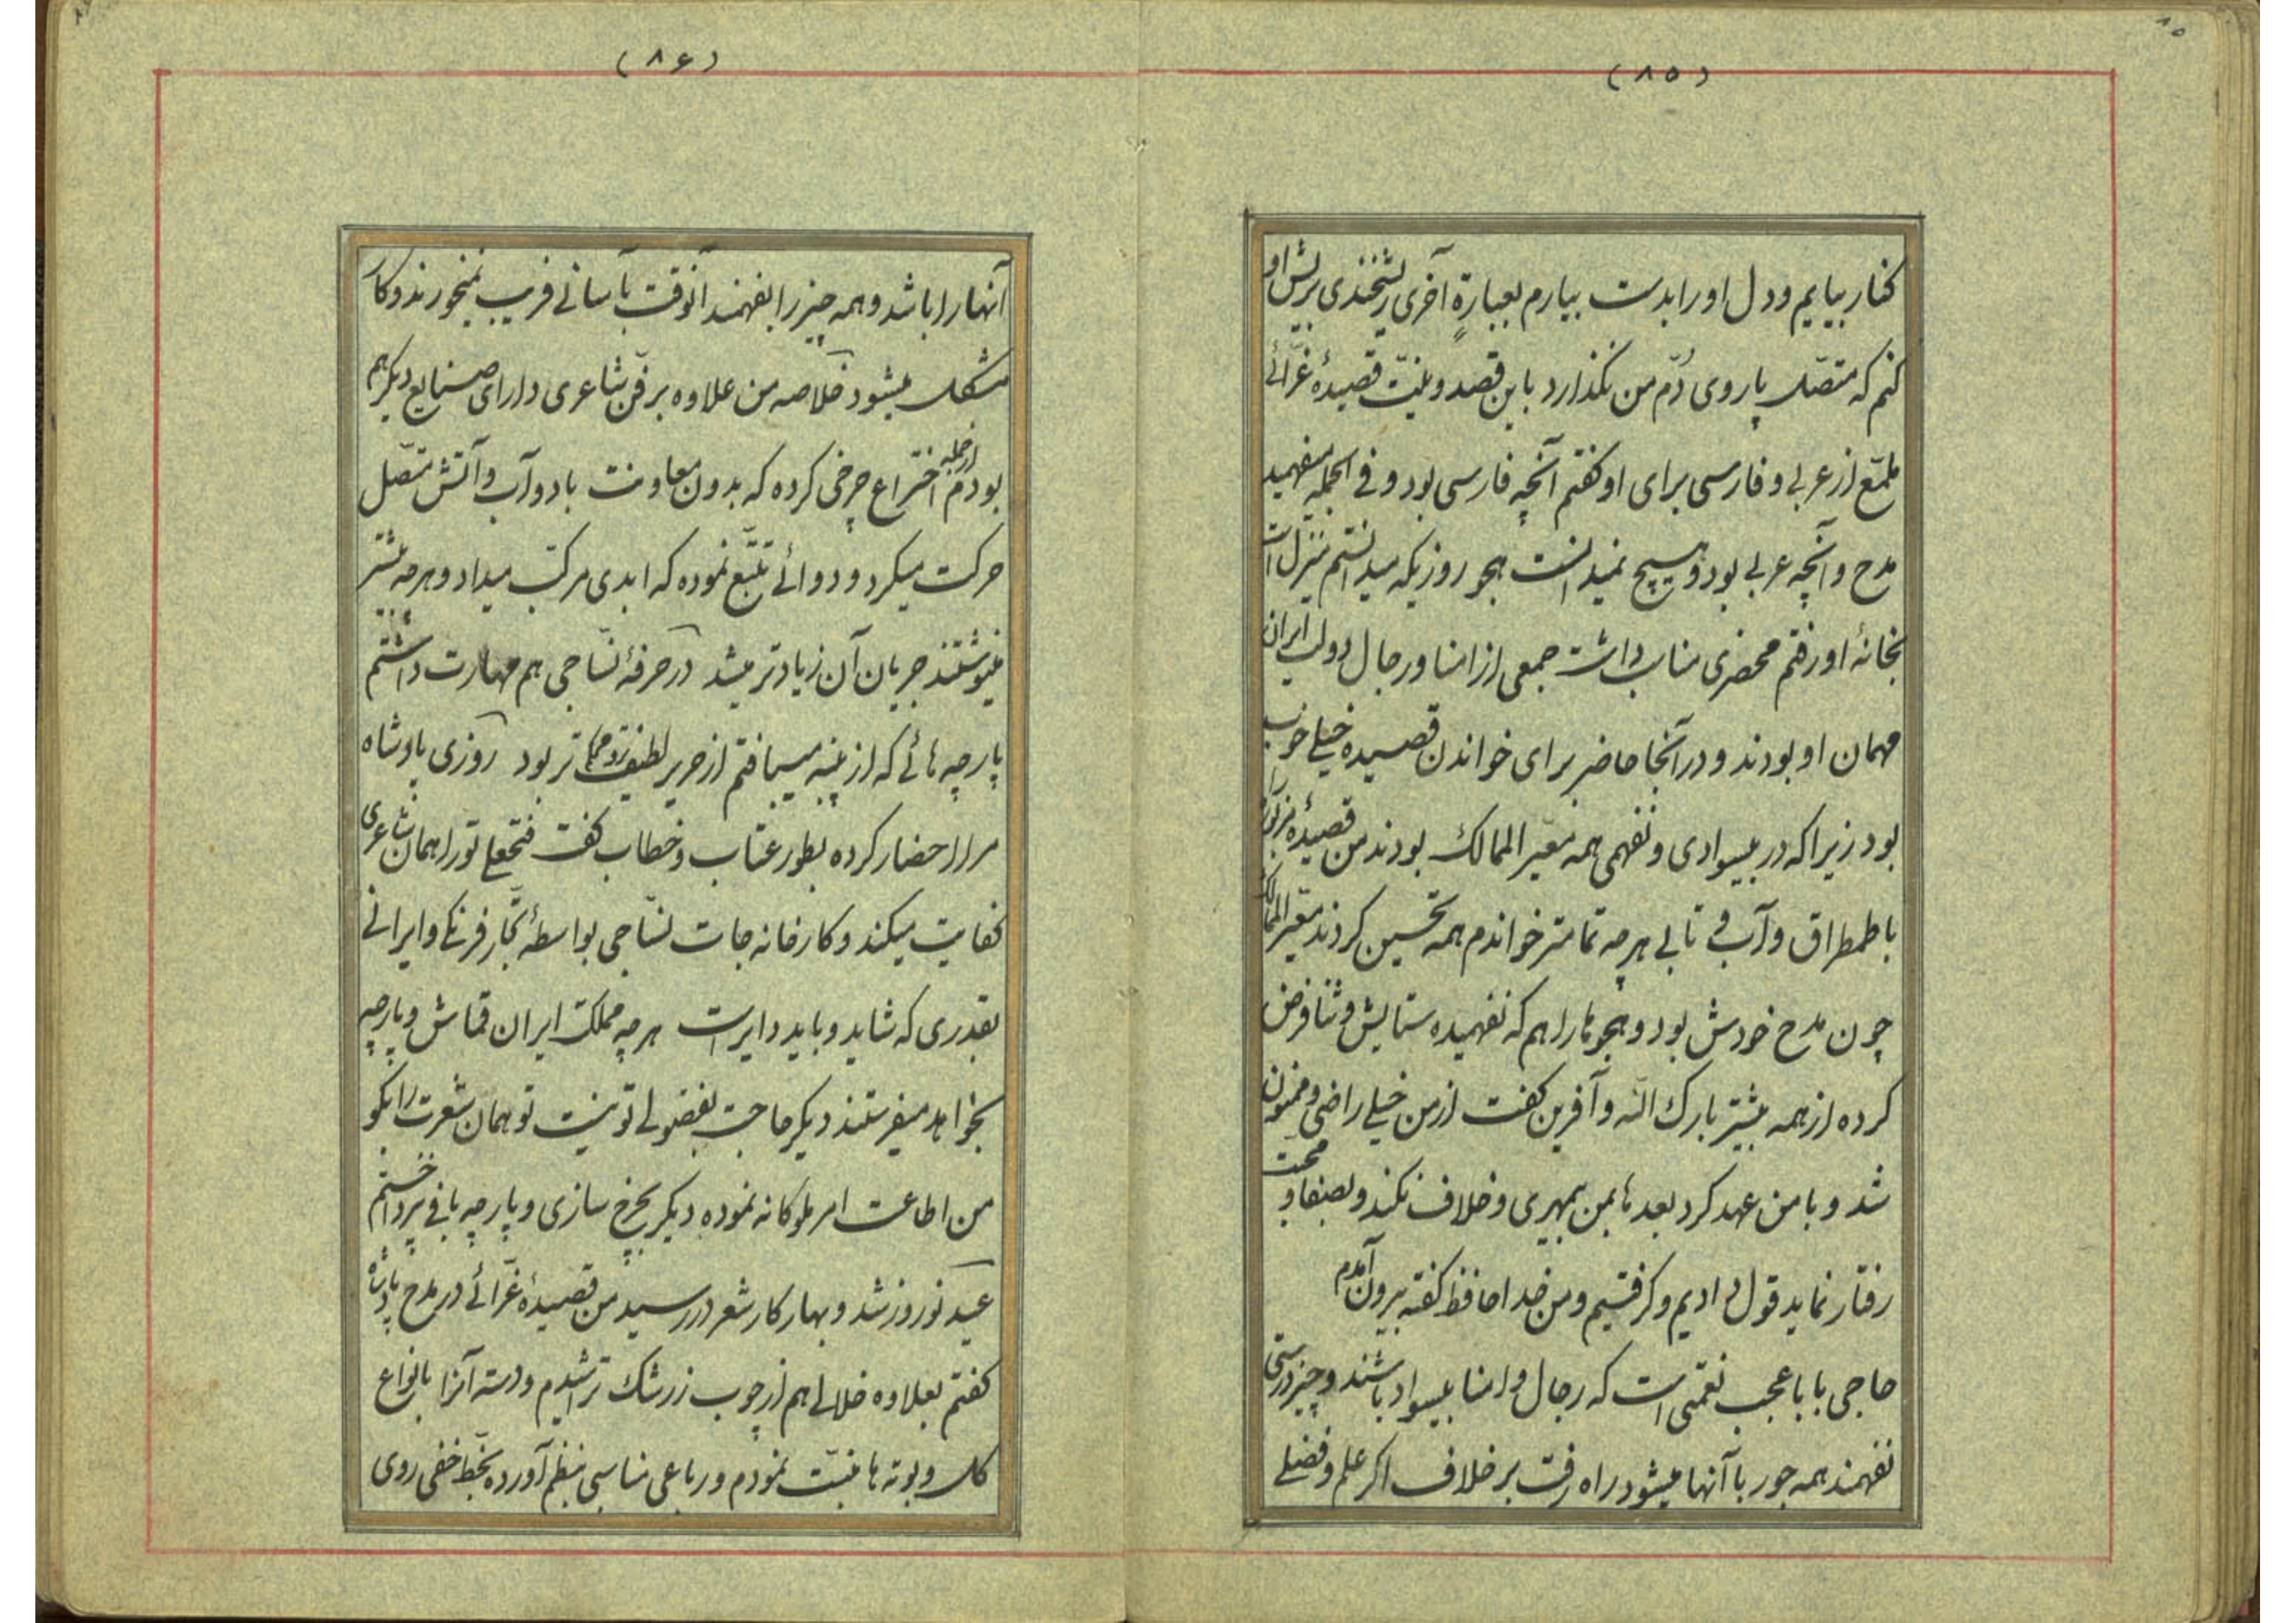 (۸۵)
کنار بیایم و دل او را بدست بیارم بعبارةٍ آخری ریشخندی بریش او
کنم که متصل پا روی دُم من نگذارد باین قصد و نیّت قصیدۀ غرّائے
ملمّع از عربی و فارسی برای او گفتم آنچه فارسی بود و فی الجمله میفهمید
مدح و آنچه عربی بود و هیچ نمیدانست هجو روزیکه میدانستم منزل است
بخانۀ او رفتم محضری مناسب داشت جمعی از امنا و رجال دولت ایران
مهمان او بودند و در آنجا حاضر برای خواندن قصیده خیلی خوب
بود زیرا که در بیسوادی و نفهمی همه معیّر الممالک بودند من قصیدۀ مزبوره
با طمطراق و آب و تابی هر چه تمامتر خواندم همه تحسین کردند معیّر الممالک
چون مدح خودش بود و هجوها را هم که نفهمیده ستایش و ثنا فرض
کرده از همه بیشتر بارک الله و آفرین گفت از من خیلی راضی و ممنون
شد و با من عهد کرد بعدها بمن بیمهری و خلاف نکند و بصفا و محبت
رفتار نماید قول دادیم و گرفتیم و من خدا حافظ گفته بیرون آمدم
حاجی بابا عجب نعمتی است که رجال و امنا بیسواد باشند و چیز درستی
نفهمند همه جور با آنها میشود راه رفت بر خلاف اگر علم و فضلی
(۸۶)
آنها را باشد و همه چیز را بفهمند آنوقت بآسانی فریب نمیخورند و کار
مشکل میشود خلاصه من علاوه بر فنّ شاعری دارای صنایع دیگر هم
بودم از جمله اختراع چرخی کرده که بدون معاونت باد و آب و آتش متّصل
حرکت میکرد و دوائے تتبّع نموده که ابدی مرکّب میداد و هر چه بیشتر
مینوشتند جریان آن زیادتر میشد در حرفۀ نسّاجی هم مهارت داشتم
پارچه هائے که از پنبه میبافتم از حریر لطیف تر و محکم تر بود روزی پادشاه
مرا احضار کرده بطور عتاب و خطاب گفت فتحعلی تو را همان شاعری
کفایت میکند و کارخانه جات نسّاجی بواسطۀ تجّار فرنگی و ایرانی
بقدری که شاید و باید دایر است هر چه مملکت ایران قماش و پارچه
بخواهد میفرستند دیگر حاجت بفضولی تو نیست تو همان شعرت را بگو
من اطاعت امر ملوکانه نموده دیگر بچرخ سازی و پارچه بافی نپرداختم
عید نوروز شد و بهار کار شعر در رسید من قصیدۀ غرّائے در مدح پادشاه
گفتم بعلاوه خلالی هم از چوب زرشک تراشیدم و دسته آنرا بانواع
گل و بوته ها منبّت نمودم و رباعی مناسبی بنظم آورده بخطّ خفی روی